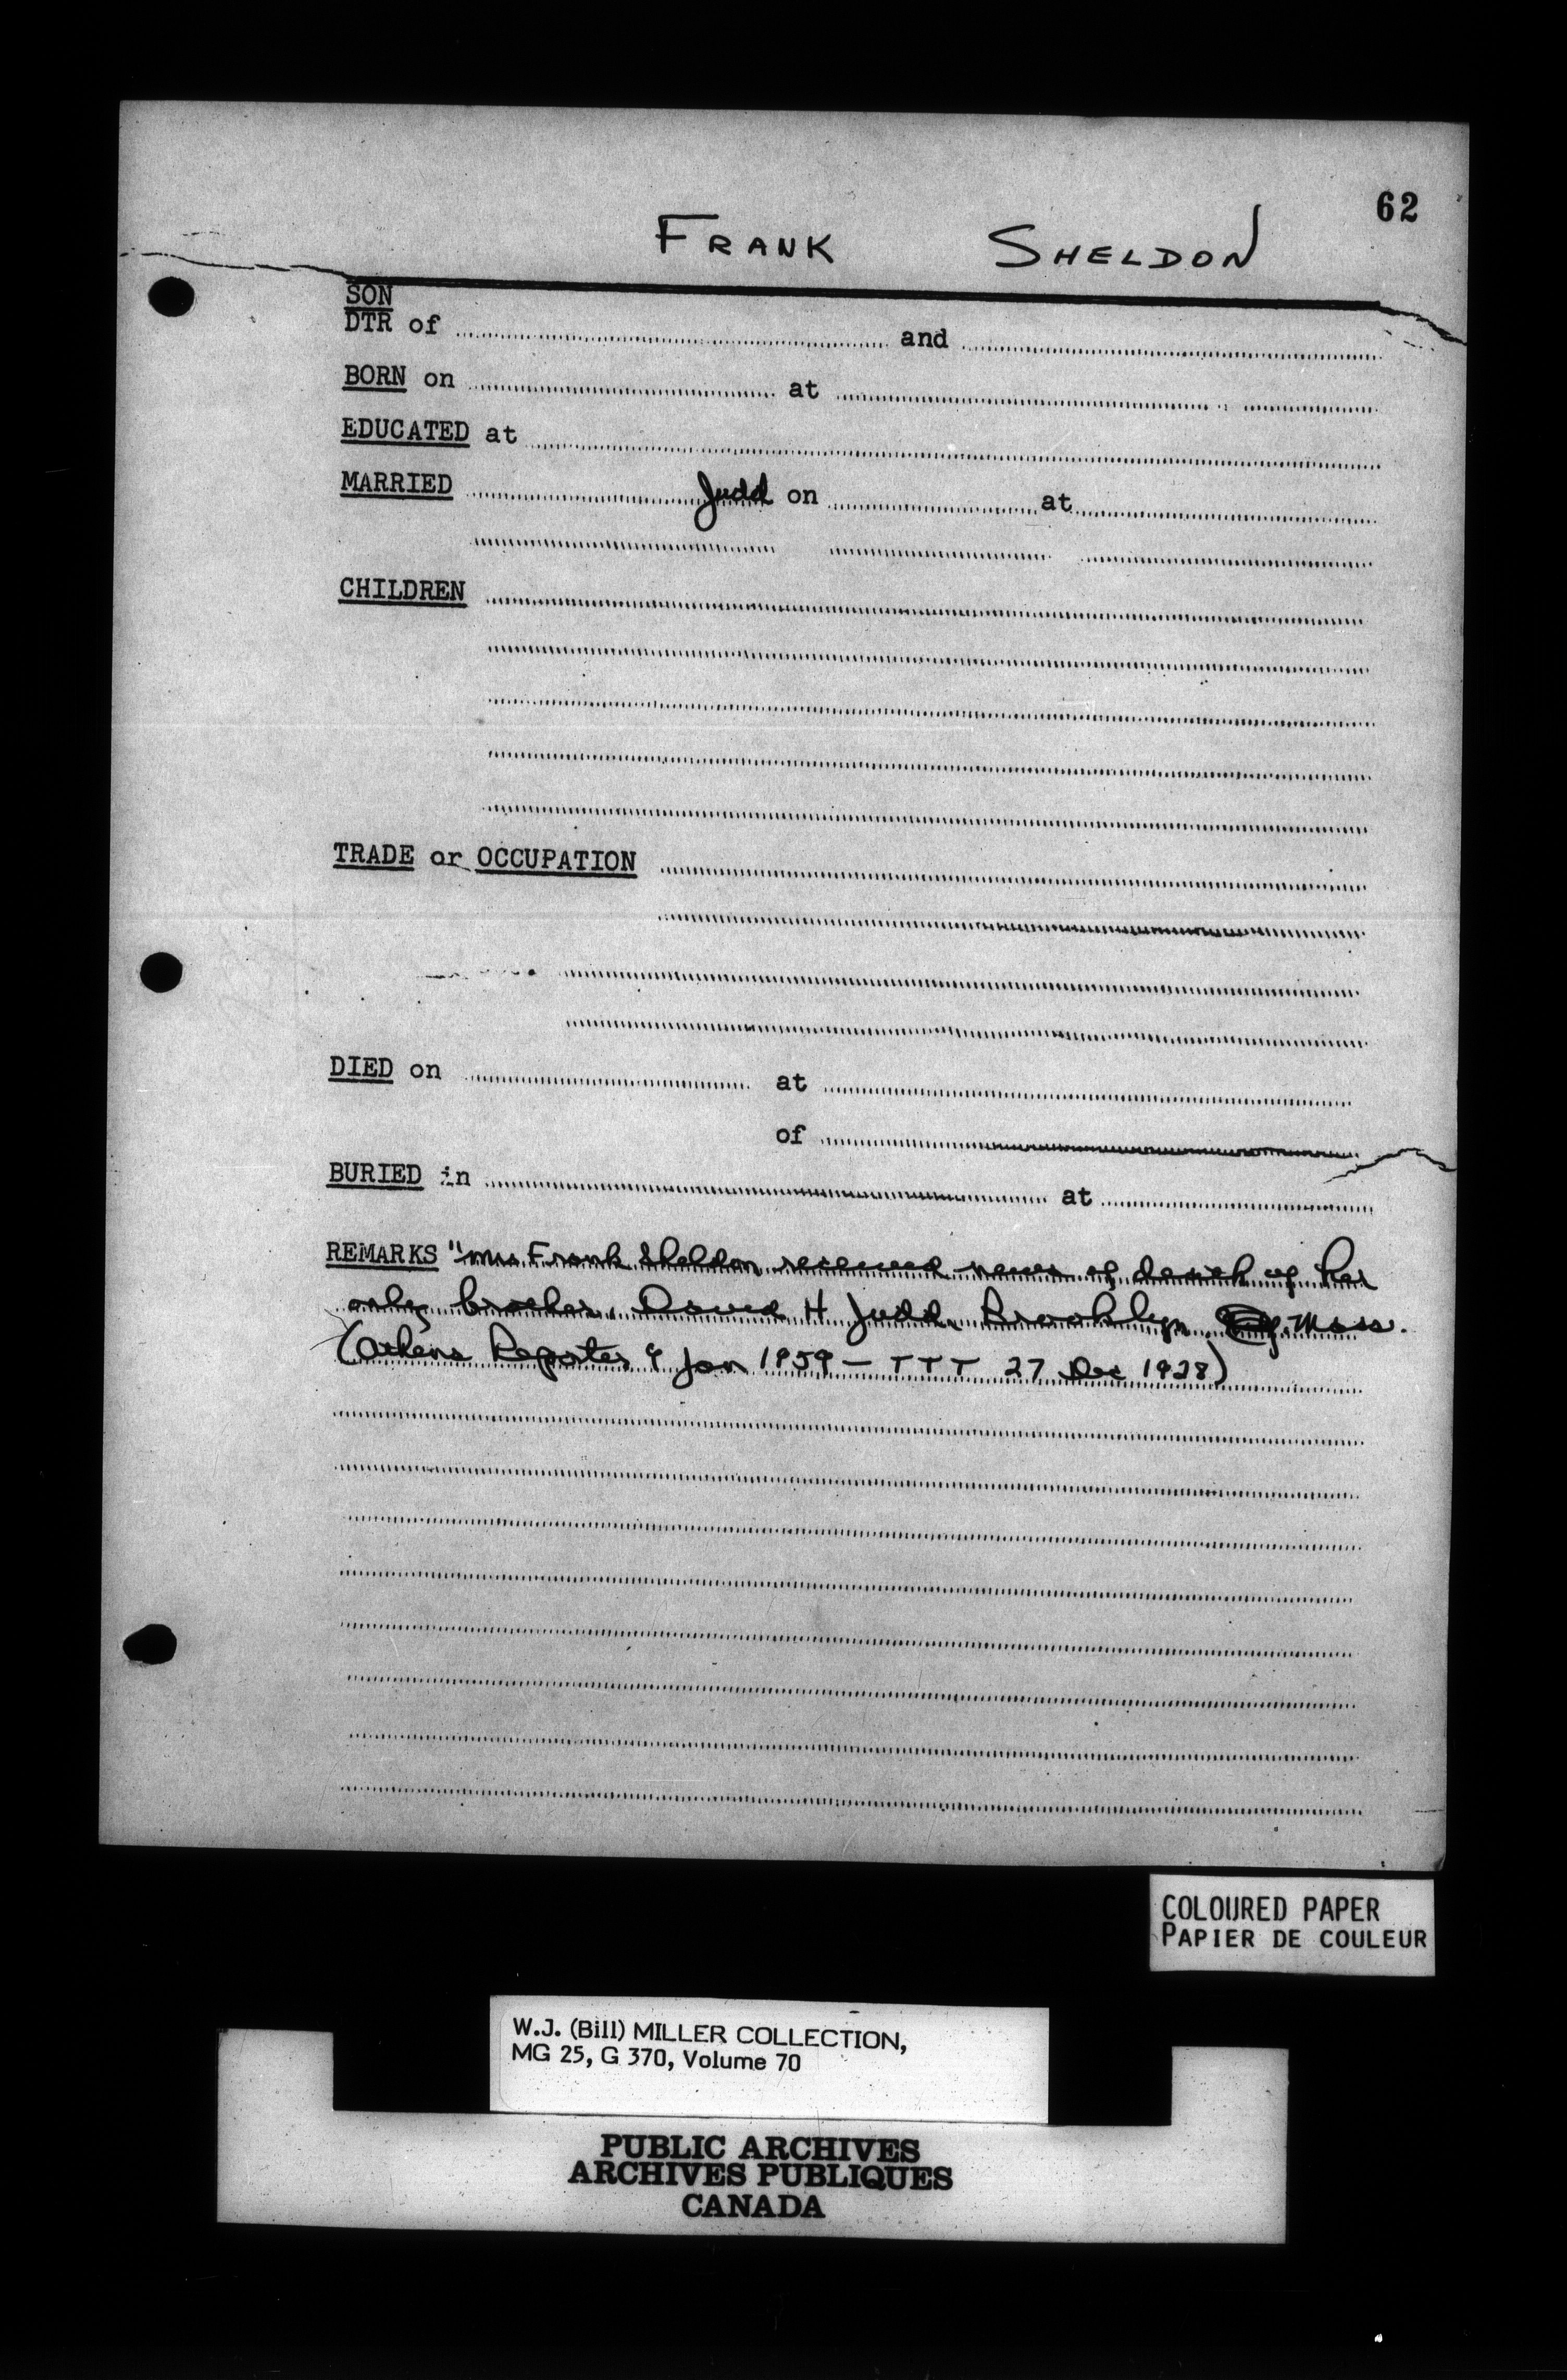 62
FRANK SHELDON
SON
DTR of and
BORN on at
EDUCATED at
MARRIED Judd on at
CHILDREN
TRADE or OCCUPATION
DIED on at
of
BURIED in at
REMARKS "Mrs Frank Sheldon received news of death of her
only brother, David H Judd, Brooklyn, Mass.
(Athens Reporter 9 Jan 1959 - TTT 27 Dec 1928)
COLOURED PAPER
PAPIER DE COULEUR
W.J. (Bill) MILLER COLLECTION,
MG 25, G 370, Volume 70
PUBLIC ARCHIVES
ARCHIVES PUBLIQUES
CANADA